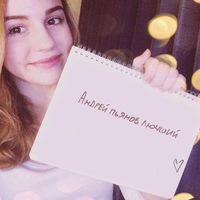 Андрей пьянов лючший